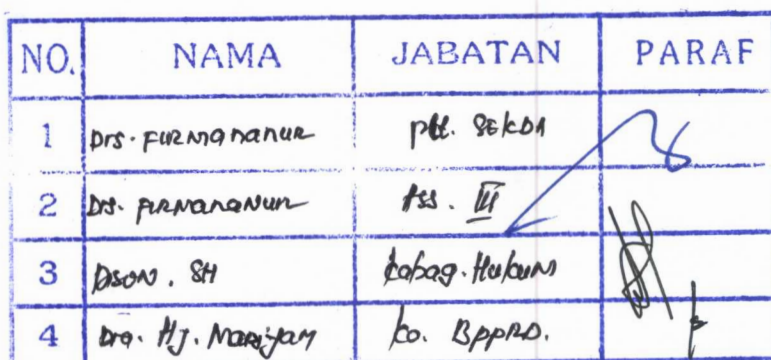 NO. NAMA JABATAN PARAF
1 Drs. FIRMANANUR Plt. SEKDA
2 Drs. FIRMANANUR Ass. III
3 DISON. SH Kabag. Hukum
4 Dra. Hj. Mariyam Ka. BPPRD.